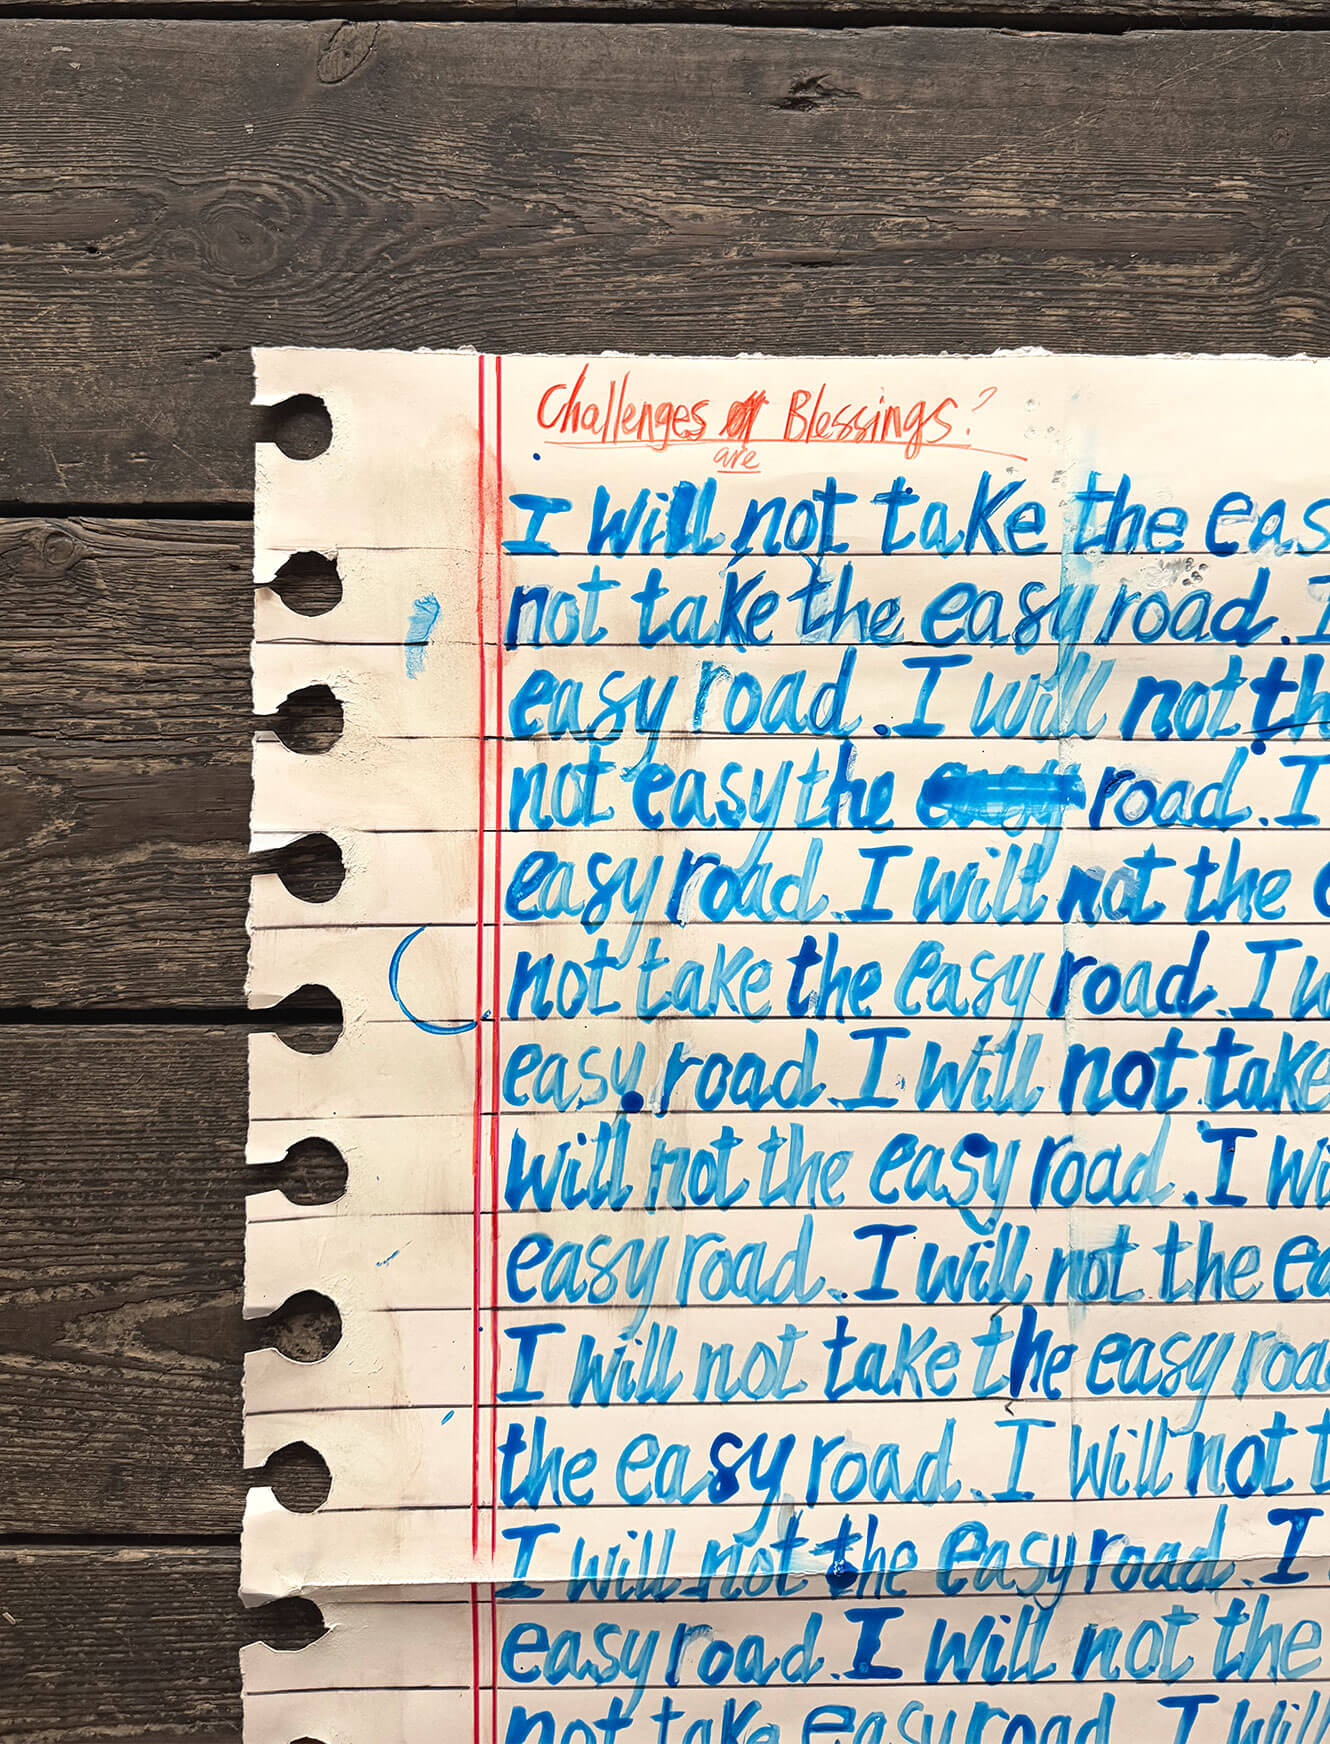 Challenges are Blessings?
I will not take the eas
not take the easy road. I
easy road. I will not th
not easy the easy road. I
easy road. I will not the e
not take the easy road. I w
easy road. I will not take
will not the easy road. I wi
easy road. I will not the ea
I will not take the easy roa
the easy road. I will not t
I will not the easy road. I
easy road. I will not the
not take easy road. I will